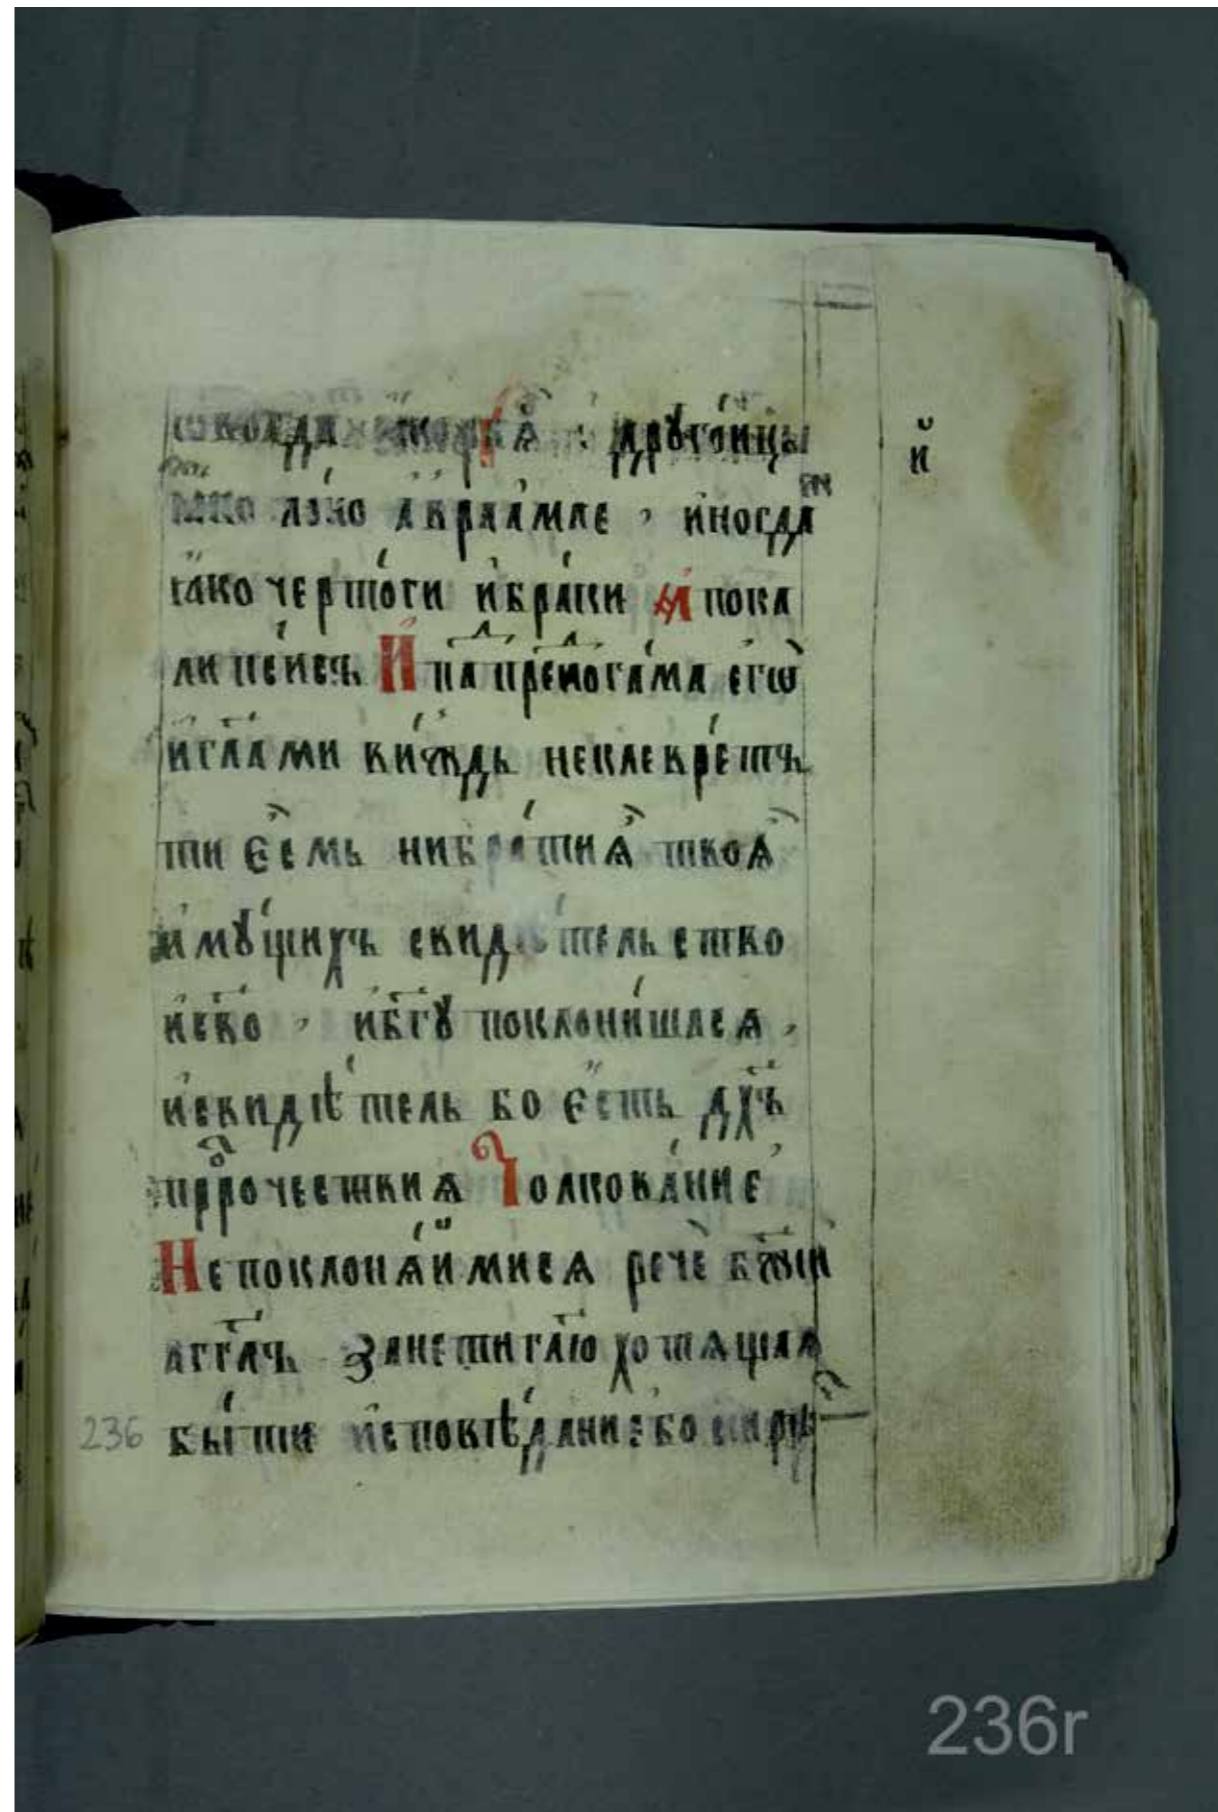 овогда двоѧкѡ : дрꙋгоицы й
ꙗко лоно а҆враа́мле , и҆ногда
ꙗ҆́ко черто́ги и҆бра́ки И пока
ли псисѧ И҆ па́ при́емога́ма є҆гѡ̀
и҆гл҃а́ми ви́ждь не клевре́тъ
ти є҆́смь ни бра́тиѧ̀ твоѧ̀
и҆мꙋ́щихъ свидѣ́тельство
и҆с҃во , и҆бг҃ꙋ поклони́шасѧ ,
и҆свидѣ́тель бо є҆́сть дх҃ъ
прⷪ҇рочествиѧ Толкова́ние
Не поклонѧ́й ми сѧ речѐ бж҃ий
агг҃лъ зане ти гл҃ю хотѧщаѧ
бы́ти и҆сповѣ́дание бо
236
236r